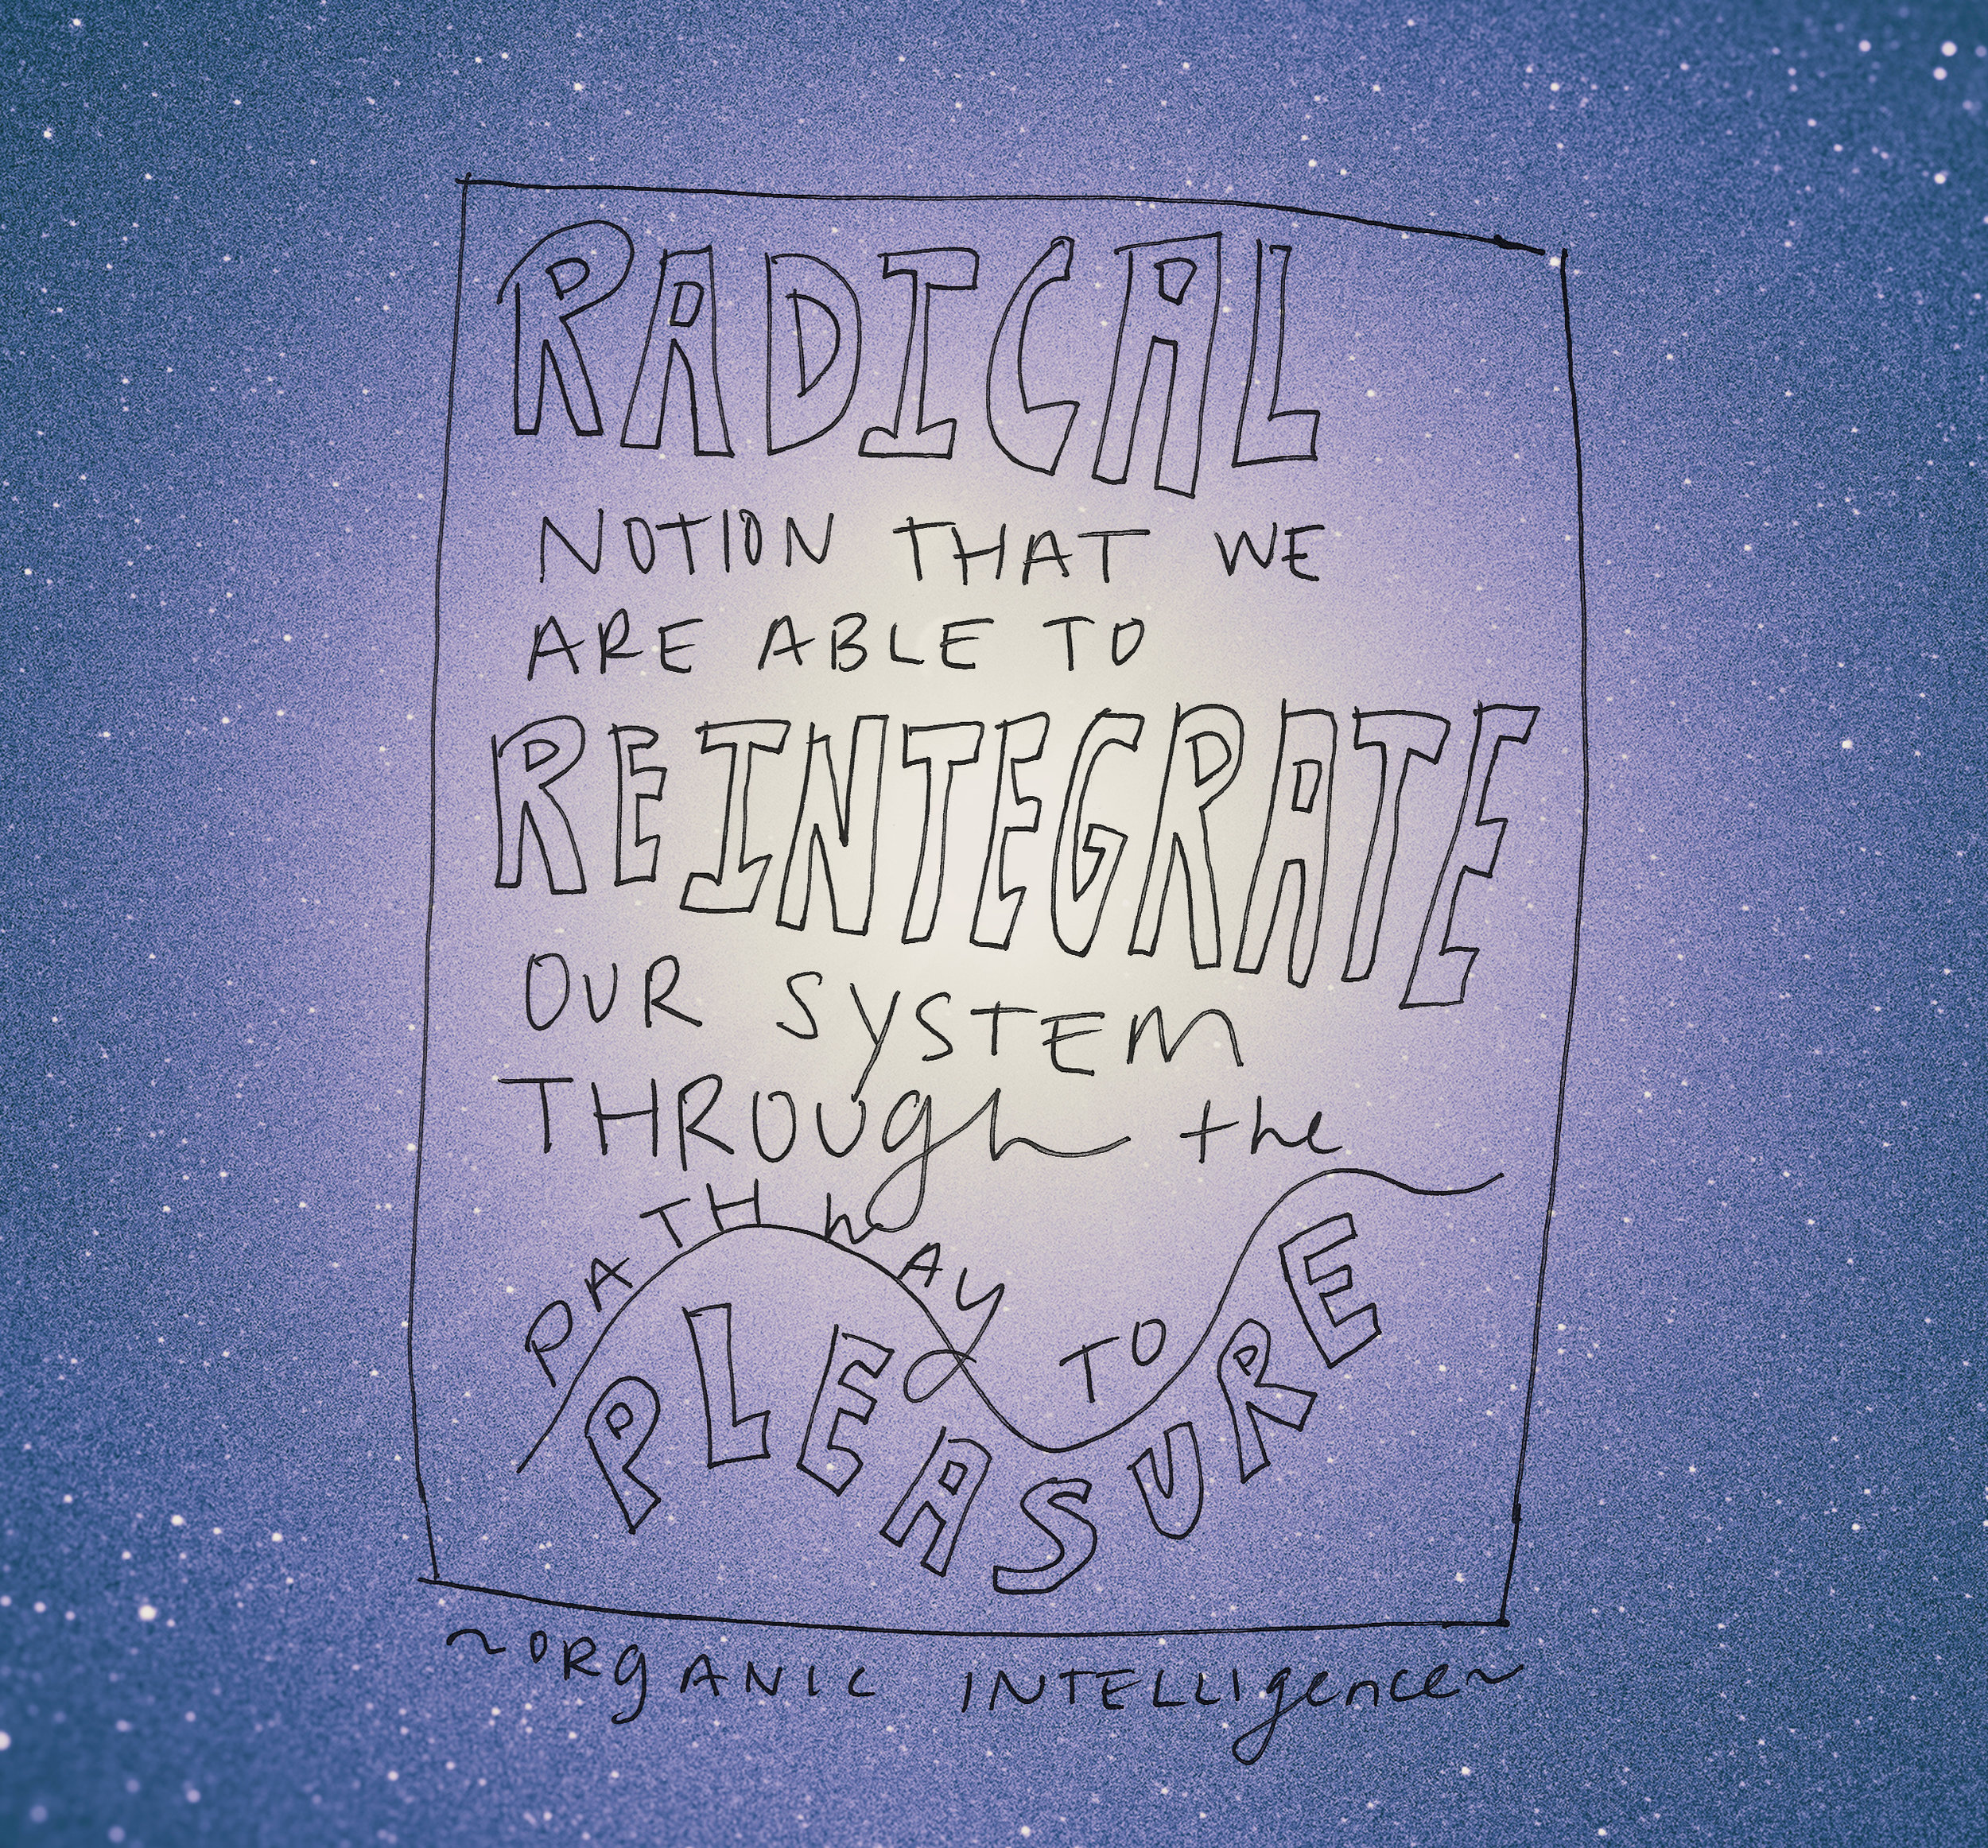 RADICAL
NOTION THAT WE
ARE ABLE TO
REINTEGRATE
OUR SYSTEM
THROUgh the
PATHWAY TO
PLEASURE
~ORgANIC INTELLIgence~